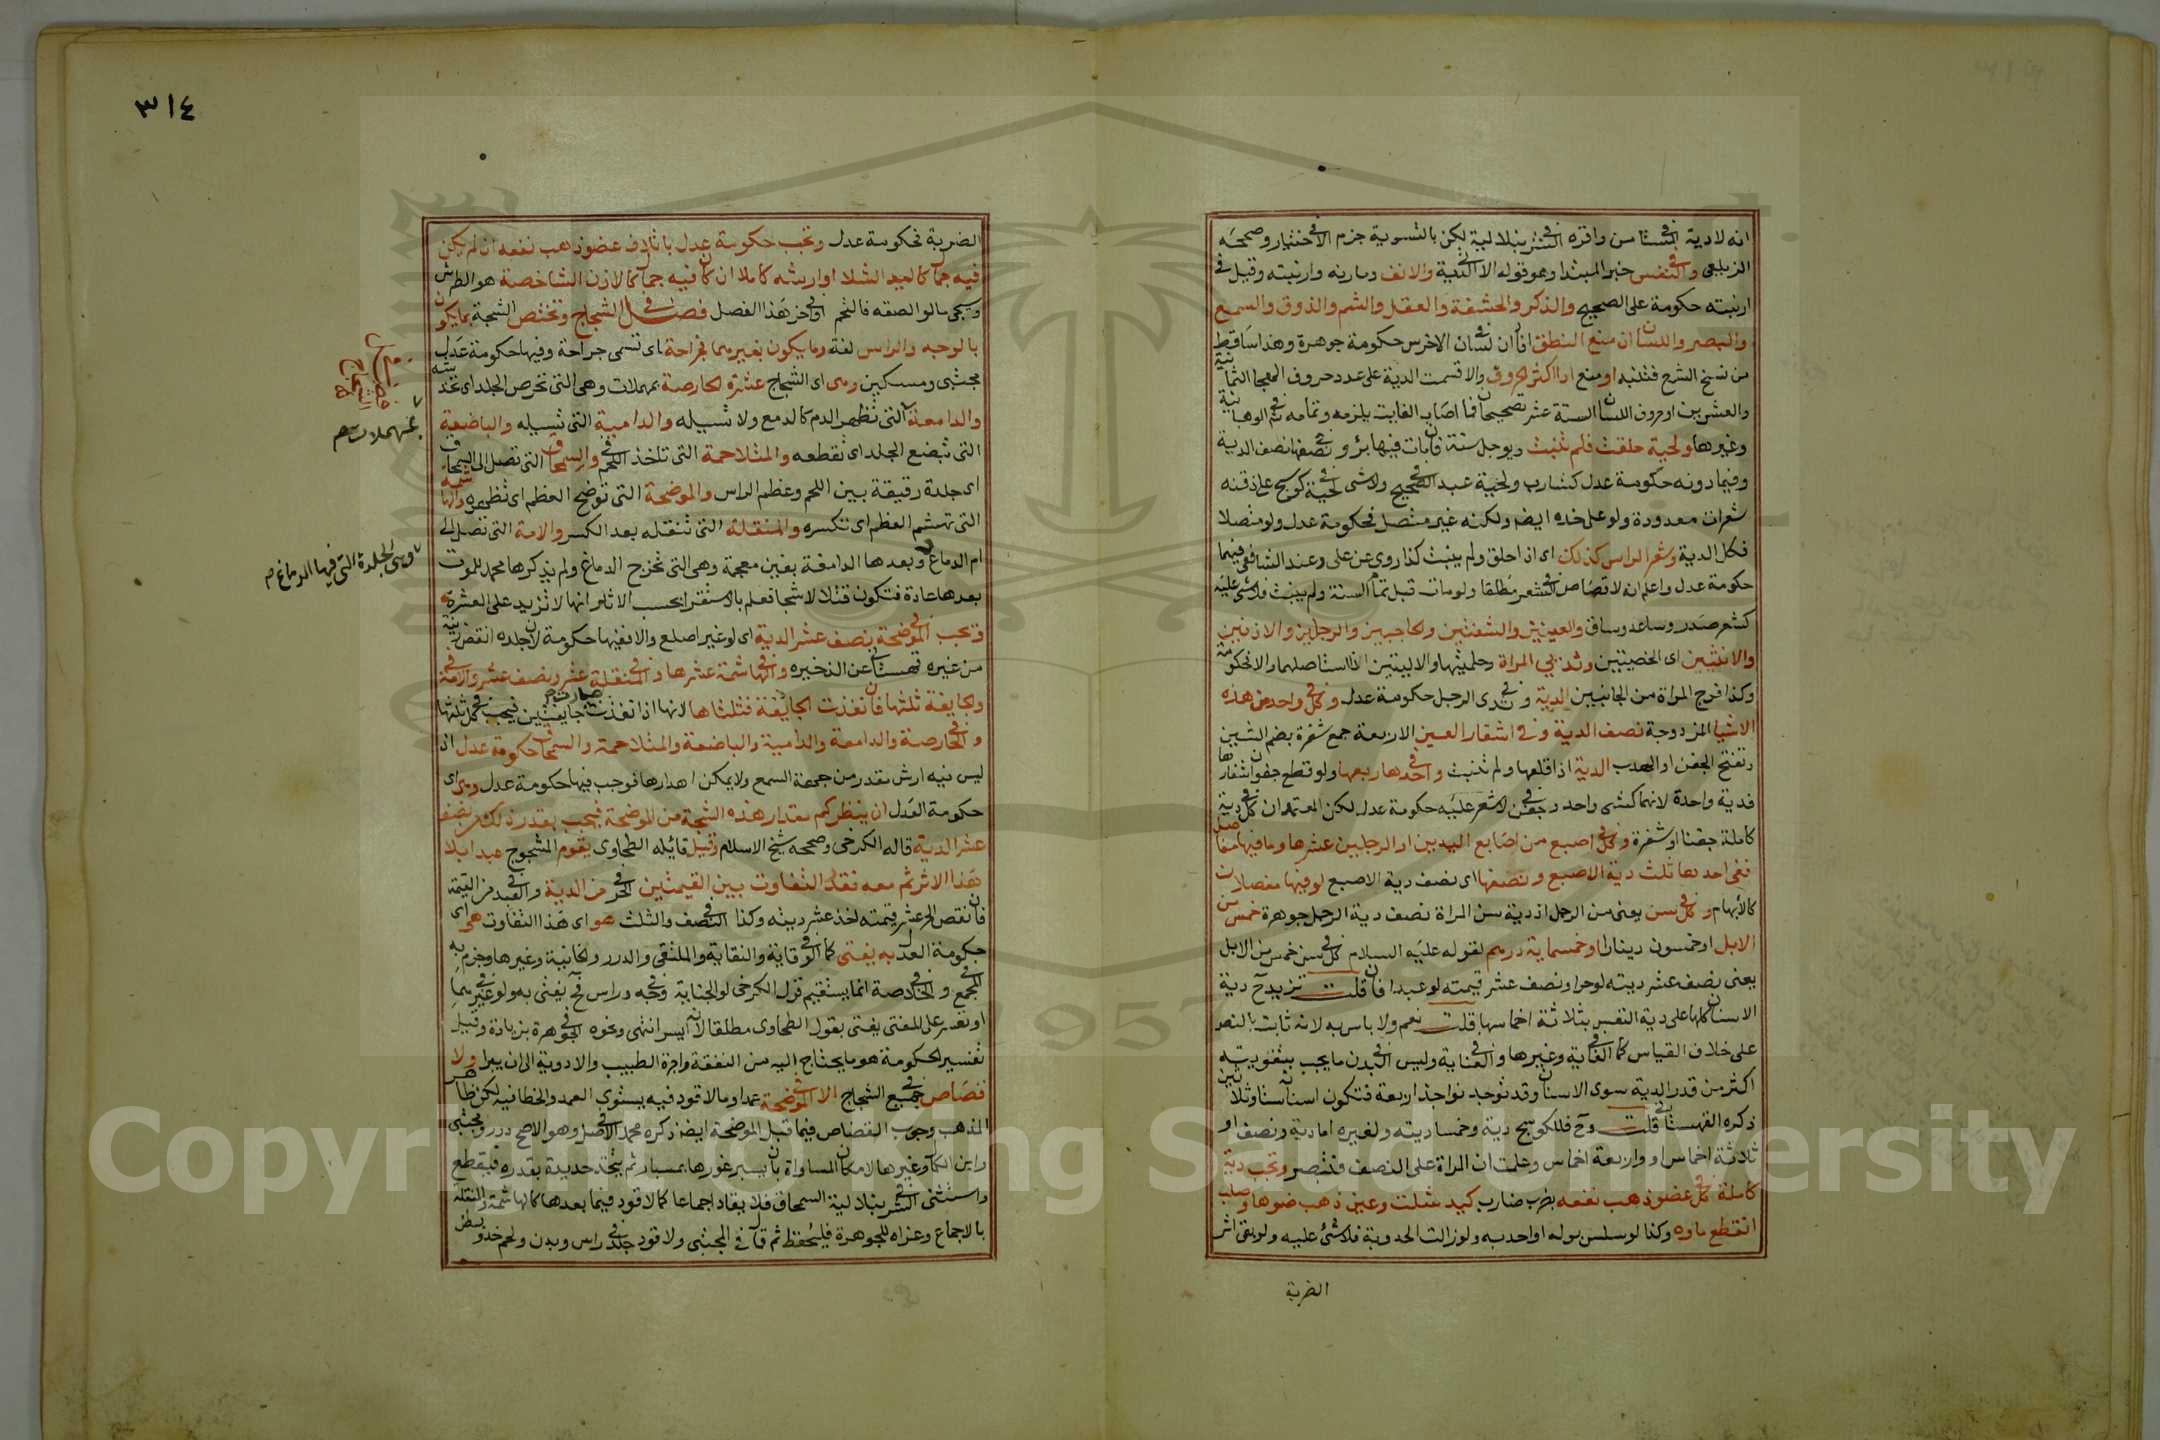 انه لادية في الستة من واقره في الشرنبلالية لكن بالتسوية جزم في الاختيار وصححه
الزيلعي وفي النفس خبر المبتدا وهو قوله الاتي الدية والانف ومارنه وارنبته وقيل في
ارنبته حكومة على الصحيح والذكر والحشفة والعقل والشم والذوق والسمع
والبصر واللسان ان منع النطق افاد ان في لسان الاخرس حكومة جوهرة وهذا ساقط
من نسخ الشرح فتنبه او منع اداء اكثر الحروف والا قسمت الدية على عدد حروف الهجا الثمانية
والعشرين او حروف اللسان الستة عشر تصحيحان فما اصاب الفايت يلزمه وتمامه في شرح الوهبانية
وغيرها ولحية حلقت فلم تنبت ويوجل سنة فان مات فيها برئ وفي نصفها نصف الدية
وفيما دونه حكومة عدل كشارب ولحية عبد في الصحيح ولا شي في لحية كوسج على ذقنه
شعرات معدودة ولو على خده ايضا ولكنه غير متصل فحكومة عدل ولو متصلا
فكل الدية وشعر الراس كذلك اى اذا حلق ولم ينبت كذا روي عن علي وعند الشافعي فيهما
حكومة عدل واعلم انه لا قصاص في الشعر مطلقا ولو مات قبل تمام السنة ولم ينبت فلا شي عليه
كشعر صدر وساعد وساق والعينين والشفتين والحاجبين والرجلين والاذنين
والانثيين اى الخصيتين وثديي المراة وحلمتيها والاليتين اذا استاصلهما والا فحكومة
وكذا فرج المراة من الجانبين الدية وفي ثدى الرجل حكومة عدل وفي كل واحد من هذه
الاشيا المزدوجة نصف الدية وفي اشفار العين الاربعة جمع شفرة بضم الشين
وتفتح الجفن او الهدب الدية اذا قلعها ولم تنبت وفي احدها ربعها ولو قطع جفون اشفارها
فدية واحدة لانهما كشى واحد وفي جفن لا شعر عليه حكومة عدل لكن المعتمد ان في كل دية
كاملة جفنا او شفرة وفي كل اصبع من اصابع اليدين او الرجلين عشرها وما فيها مفاصل
ففي احدها ثلث دية الاصبع ونصفها اى نصف دية الاصبع لو فيها مفصلان
كالابهام وفي كل سن يعني من الرجل اذ دية سن المراة نصف دية الرجل جوهرة خمس من
الابل او خمسون دينارا او خمسماية درهم لقوله عليه السلام في كل سن خمس من الابل
يعني نصف عشر ديته لو حرا ونصف عشر قيمته لو عبدا فان قلت تزيد ح دية
الاسنان كلها على دية النفس بثلاثة اخماسها قلت نعم ولا باس به لانه ثابت بالنص
على خلاف القياس كما في الغاية وغيرها وفي العناية وليس في البدن ما يجب بتفويته
اكثر من قدر الدية سوى الاسنان وقد توجد نواجذ اربعة فتكون اسنانه ستا وثلاثين
ذكره القهستاني قلت وح فللكوسج دية وخمسا ديته ولغيره اما دية ونصف او
ثلاثة اخماس او واربعة اخماس وعلمت ان المراة على النصف فتبصر وتجب دية
كاملة في كل عضو ذهب نفعه بضرب ضارب كيد شلت وعين ذهب ضوها وصلب
انقطع ماوه وكذا لو سلس بوله او احدبه ولو زالت الحدوبة فلا شي عليه ولو بقى اثر
الضربة
٣١٤
الضربة فحكومة عدل وتجب حكومة عدل باتلاف عضو ذهب نفعه ان لم يكن
فيه جمال كاليد الشلا او ارشه كاملا ان كان فيه جمال كالاذن الشاخصة هو الطرش
وسيجى ما لو الصقه فالتحم في اواخر هذا الفصل فصل في الشجاج وتختص الشجة بما يكون
بالوجه والراس لغة وما يكون بغيرهما فجراحة اى تسمى جراحة وفيها حكومة عدل
مجتبى ومسكين وهى اى الشجاج عشرة الحارصة بمهملات وهى التي تحرص الجلد اى تخدشه
والدامعة التي تظهر الدم كالدمع ولا تسيله والدامية التي تسيله والباضعة
التي تبضع الجلد اى تقطعه والمتلاحمة التي تاخذ في اللحم والسمحاق التي تصل الى السمحاق
اى جلدة رقيقة بين اللحم وعظم الراس والموضحة التي توضح العظم اى تظهره والهاشمة
التي تهشم العظم اى تكسره والمنقلة التي تنقله بعد الكسر والامة التي تصل الى
ام الدماغ وبعدها الدامغة بغين معجمة وهى التي تخرج الدماغ ولم يذكرها محمد للموت
بعدها عادة فتكون قتلا لا شجا فعلم بالاستقرا بحسب الاثار انها لا تزيد على العشرة
وتجب في الموضحة نصف عشر الدية اى لو غير اصلع والا ففيها حكومة لان جلده انقص زينة
من غيره قهستاني عن الذخيره وفي الهاشمة عشرها وفي المنقلة عشر ونصف عشر وفي الامة
والجايفة ثلثها فان نفذت الجايفة فثلثاها لانها اذا نفذت صارت جايفتين فيجب في كل ثلثها
وفي الحارصة والدامعة والدامية والباضعة والمتلاحمة والسمحاق حكومة عدل اذ
ليس فيه ارش مقدر من جهة السمع ولا يمكن اهدارها فوجب فيها حكومة عدل وهى اى
حكومة العدل ان ينظر كم مقدار هذه الشجة من الموضحة فيجب بقدر ذلك من نصف
عشر الدية قاله الكرخى وصححه شيخ الاسلام وقيل قائله الطحاوى يقوم المشجوج عبدا بلا
هذا الاثر ثم معه فقدر التفاوت بين القيمتين في الحر من الدية وفي العبد من القيمة
فان نقص الحر عشر قيمته اخذ عشر ديته وكذا في النصف والثلث هو اى هذا التفاوت هى اى
حكومة العدل به يفتى كما في الوقاية والنقاية والملتقى والدرر والخانية وغيرها وجزم به
في المجمع وفي الخلاصة انما يستقيم قول الكرخى لو الجناية في وجه وراس فح يفتى به ولو في غيرهما
او تعسر على المفتى يفتى بقول الطحاوى مطلقا لانه ايسر انتهى ونحوه في الجوهرة بزيادة وقيل
تفسير الحكومة هو ما يحتاج اليه من النفقة واجرة الطبيب والادوية الى ان يبرا ولا
قصاص في جميع الشجاج الا في الموضحة عمدا وما لا قود فيه يستوى العمد والخطا فيه لكن ظاهر
المذهب وجوب القصاص فيما قبل الموضحة ايضا ذكره محمد في الاصل وهو الاصح درر ومجتبى
وابن الكمال وغيرها لامكان المساواة بان يسبر غورها بمسبار ثم يتخذ حديدة بقدره فيقطع
واستثنى في الشرنبلالية السمحاق فلا يقاد اجماعا كما لا قود فيما بعدها كالهاشمة والمنقلة
بالاجماع وعزاه للجوهرة فليحفظ ثم قال في المجتبى ولا قود في جلد راس وبدن ولحم خد وبطن
فصل في الشجاج
بمهملات صح
وهى الجلدة التي فيها الدماغ م
Copyright © King Saud University
1957